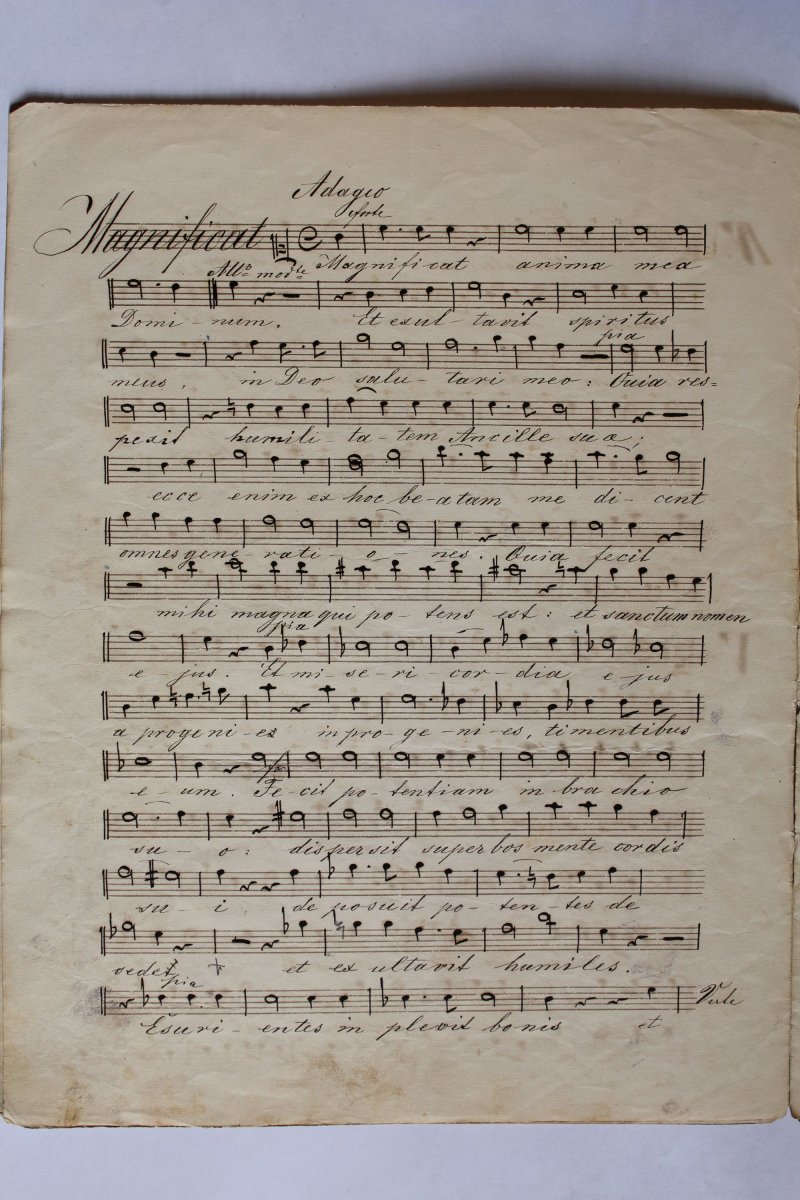 Adagio
forte
Magnificat
All.o mod.te Magnificat anima mea
Domi - num. Et exul - tavit spiritus
pia
meus, in Deo salu - tari meo: Quia res=
pexit humili - ta - tem Ancille suæ;
ecce enim ex hoc be - atam me di - cent
omnes gene - rati - o - nes. Quia fecit
mihi magna qui po - tens est: et sanctum nomen
pia
e - jus. Et mi - se - ri - cor - dia e - jus
a progeni - es in pro - ge - ni - es, timentibus
e - um. Fe - cit po - tentiam in bra chio
su - o: dispersit superbos mente cordis
su - i, de posuit po - ten - tes de
sedet, et ex ultavit humiles.
pia
Verte
Esuri - entes in plevit bonis et